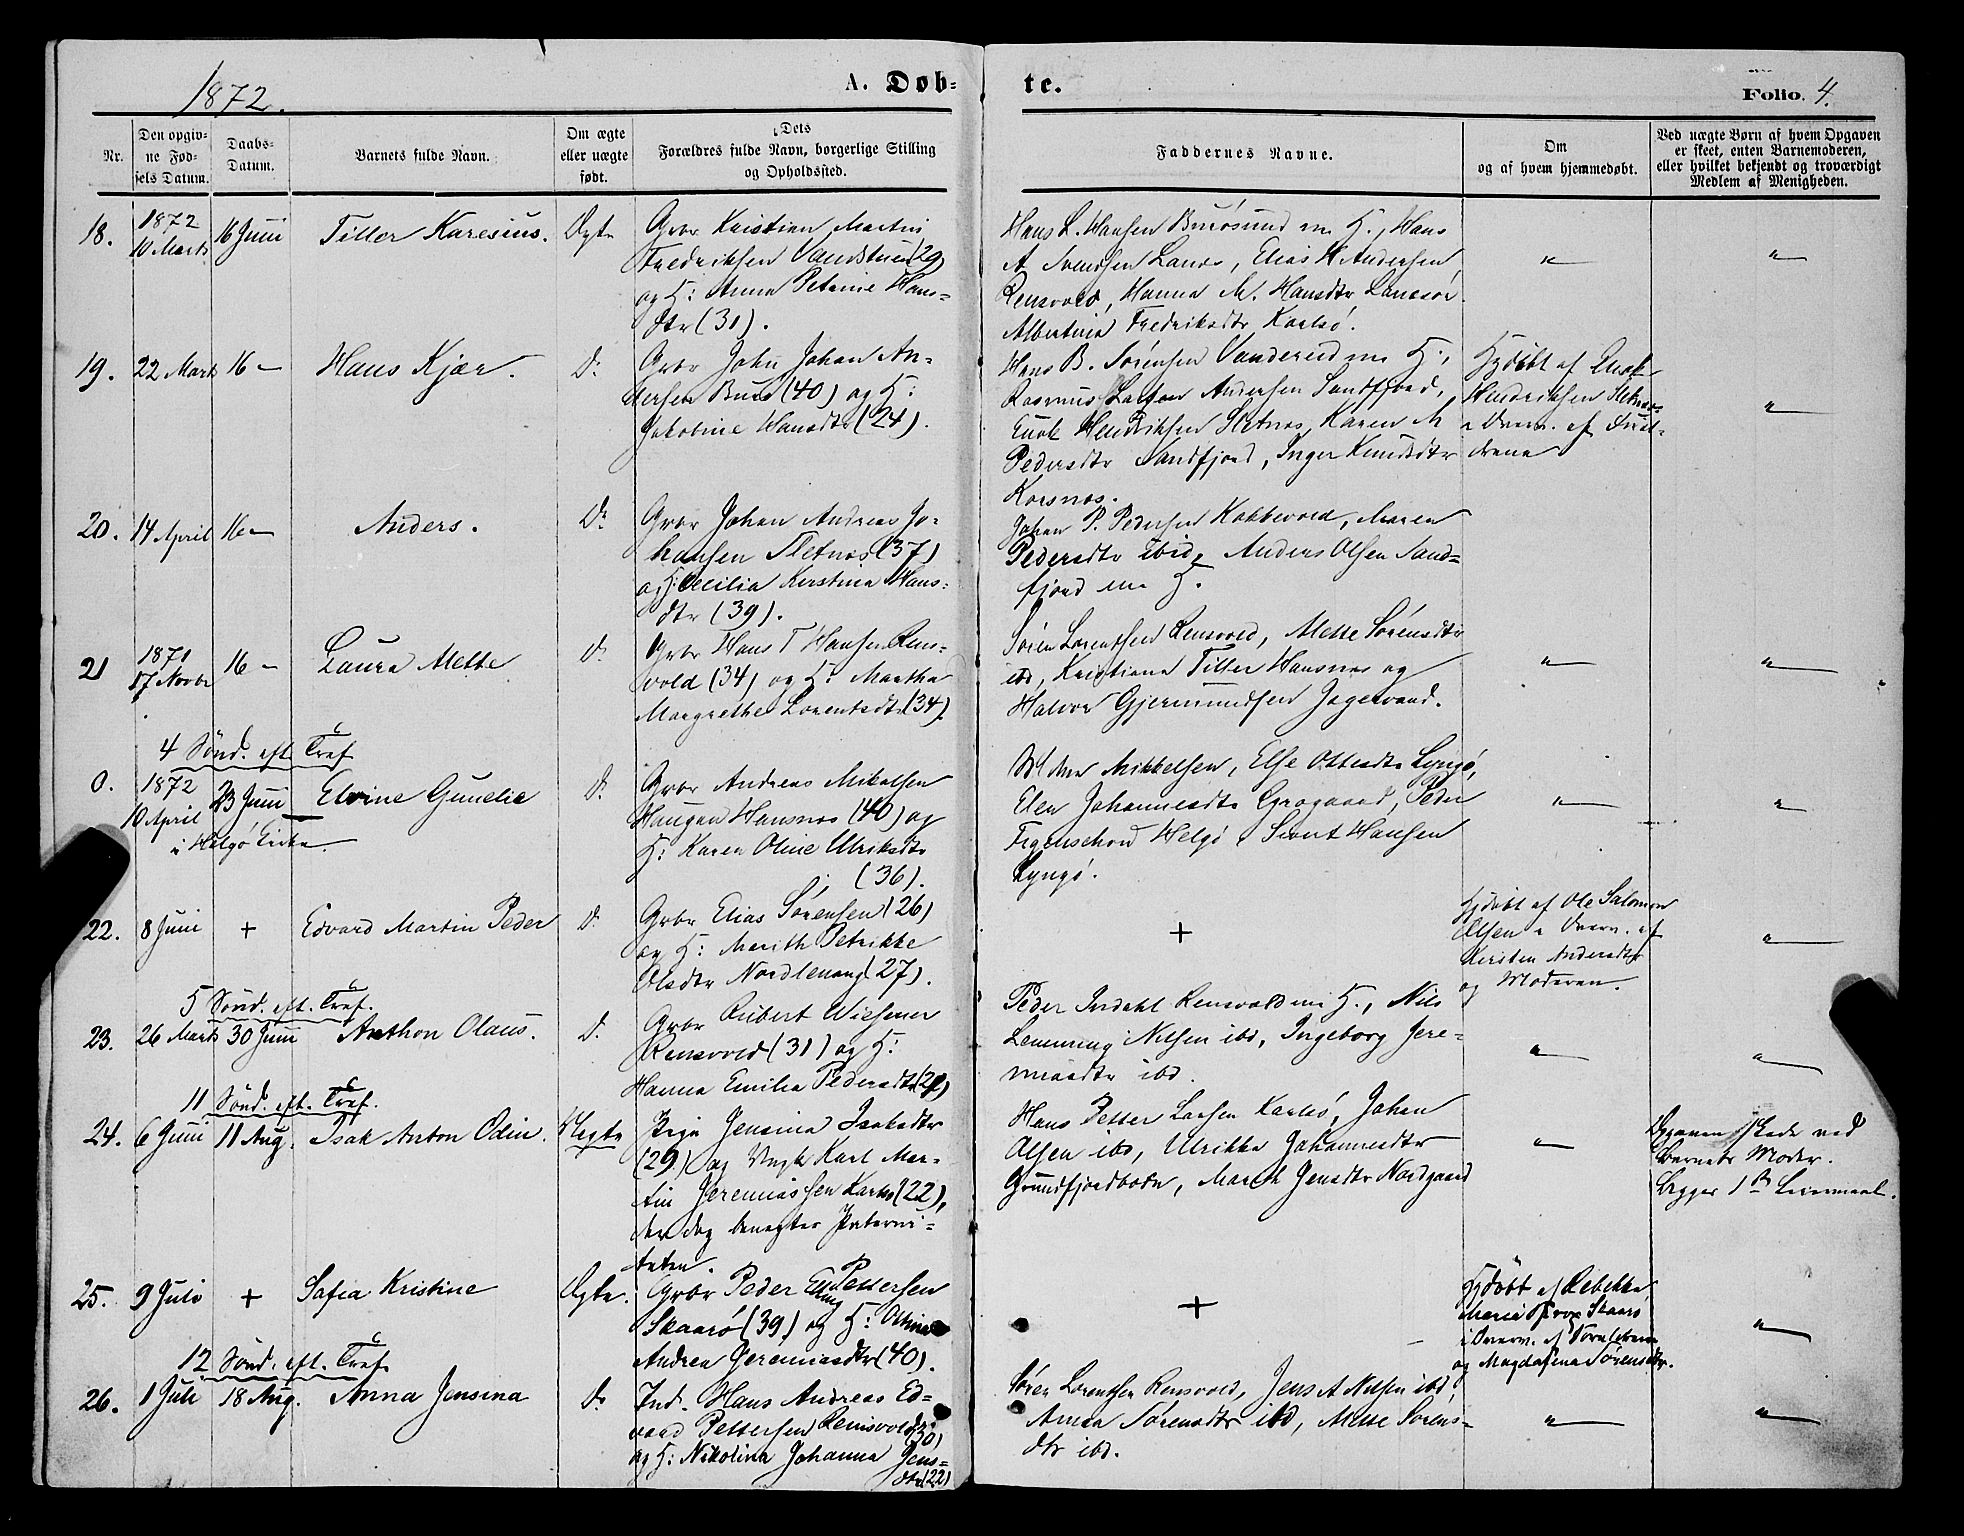 1872.
A. Døb-
te.
Folio. 4.
Nr.
Den opgiv-
ne Fød-
sels Datum.
Daabs-
Datum.
Barnets fulde Navn.
Om ægte
eller uægte
født.
Dets
Forældres fulde Navn, borgerlige Stilling
og Opholdssted.
Faddernes Navne.
Om
og af hvem hjemmedøbt.
Ved uægte Børn af hvem Opgaven
er skeet, enten Barnemoderen,
eller hvilket bekjendt og troværdigt
Medlem af Menigheden.
18.
1872
10 Marts
16 Juni
Tiller Karesius.
Ægte
Gvbr Kristian Martin
Fredriksen (29)
og H: Anna Petrine Hans-
dtr (31).
Hans L. Hansen Burøsund m H., Hans
A Svendsen Lanes, Elias H Andersen
Rensvold, Hanna M. Hansdtr Lanesør
Albertina Fredriksdtr Karlsø.
"
"
19.
22 Marts
16 –
Hans Kjær.
D:
Gvbr John Johan An-
dersen Buse (40) og H:
Jakobine Hansdtr (24).
Hans B. Sørensen m H:,
Rasmus Andersen Sandfjord,
Enok Henriksen Sletnæs, Karen M
Pedersdtr Sandfjord, Inger Knudsdtr
Korsnæs.
Hjdøbt af Enok
Hendriksen Sletnæs
i Overv. af
"
20.
14 April
16 –
Anders.
D:
Gvbr Johan Andreas Jo-
hansen Sletnæs (37)
og H: Cecilia Kirstina Hans-
dtr (39).
Johan P. Pedersen Kobbevold, Maren
Pedersdtr ibid, Anders Olsen Sand-
fjord m H.
21
1871
17 Novbr
16 –
Laura Mette
D:
Gvbr Hans T Hansen Rens-
vold (34) og H: Martha
Margrethe Lorentsdtr (34).
Søren Lorentsen Rensvold, Mette Sørensdtr
ibd, Kristiana Tiller Hansnæs og
Halvor Gjermundsen Jægervand.
"
"
4 Sønd. eft. Tref
0.
1872
10 April
23 Juni
i Helgø Kirke
Elvine Gunelie
D:
Gvbr Andreas Mikalsen
Haugen Hansnæs (40) og
H: Karen Oline Ulriksdtr
(36).
Mikkelsen, Else Ottesdtr Lyngø,
Elen Johannesdtr Grøgaard, Peder
Figenschou Helgø, Hansen
Lyngø.
"
"
22.
8 Juni
+
Edvard Martin Peder
D:
Gvbr Elias Sørensen (26)
og H: Marith Petrikke
Olsdtr Nordlenang (27).
+
Hjdøbt af Ole Salomon
Olsen i Overv. af
Kirsten Andersdtr
og Moderen.
"
5 Sønd. eft. Tref.
23.
26 Marts
30 Juni
Anthon Olaus.
D:
Gvbr Eilert Wiesener
Rensvold (31) og H:
Hanna Emilia Pedersdtr
Peder Indahl Rensvold m H., Nils
Lemming Nilsen ibd, Ingeborg Jere-
miasdtr ibd.
"
"
11 Sønd. eft. Tref.
24.
6 Juni
11 Aug.
Isak Anton Odin.
Uægte
Pige Jensina Isaksdtr
(29) og Ungk Karl Mar-
tin Jeremiassen Karlsø (22),
der dog benegter Paterni-
teten.
Hans Petter Larsen Karlsø, Johan
Olsen ibd, Ulrikka Johannesdtr
Grundfjordbotn, Marith Jensdtr Nordgaard
"
Opgaven skede ved
Barnets Moder.
Begges 1ste Leiermaal.
25.
9 Juli
+
Safia Kristine
Ægte.
Gvbr Peder Elling Pettersen
Skaarø (39) og H: Othina
Andrea Jeremiasdtr (40).
+
Hjdøbt af Rebekka
Maria Skaarø
i Overv. af
og Magdalena Sørensdtr.
"
12 Sønd. eft. Tref
26.
1 Juli
18 Aug.
Anna Jensina
D:
Ind. Hans Andreas Ed-
vard Pettersen Rensvold (30)
og H: Nikolina Johanna Jens-
dtr (22)
Søren Lorentsen Rensvold, Jens A Nilsen ibd,
Anna Sørensdtr ibd, Mette Sørens-
dtr ibd.
"
"